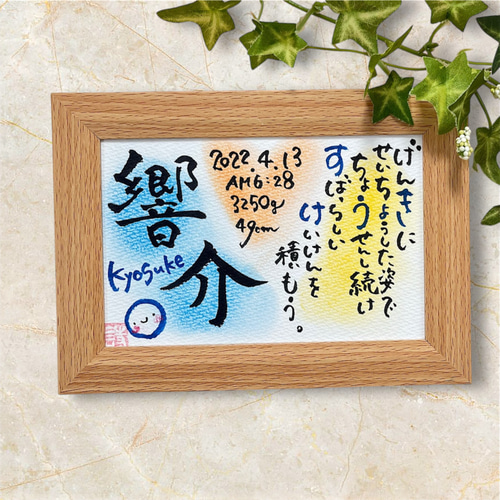 響介
Kyosuke
2022.4.13
AM6:28
3250g
49cm
げんきに
せいちょうした姿で
ちょうせんし続け
すばらしい
けいけんを
積もう。